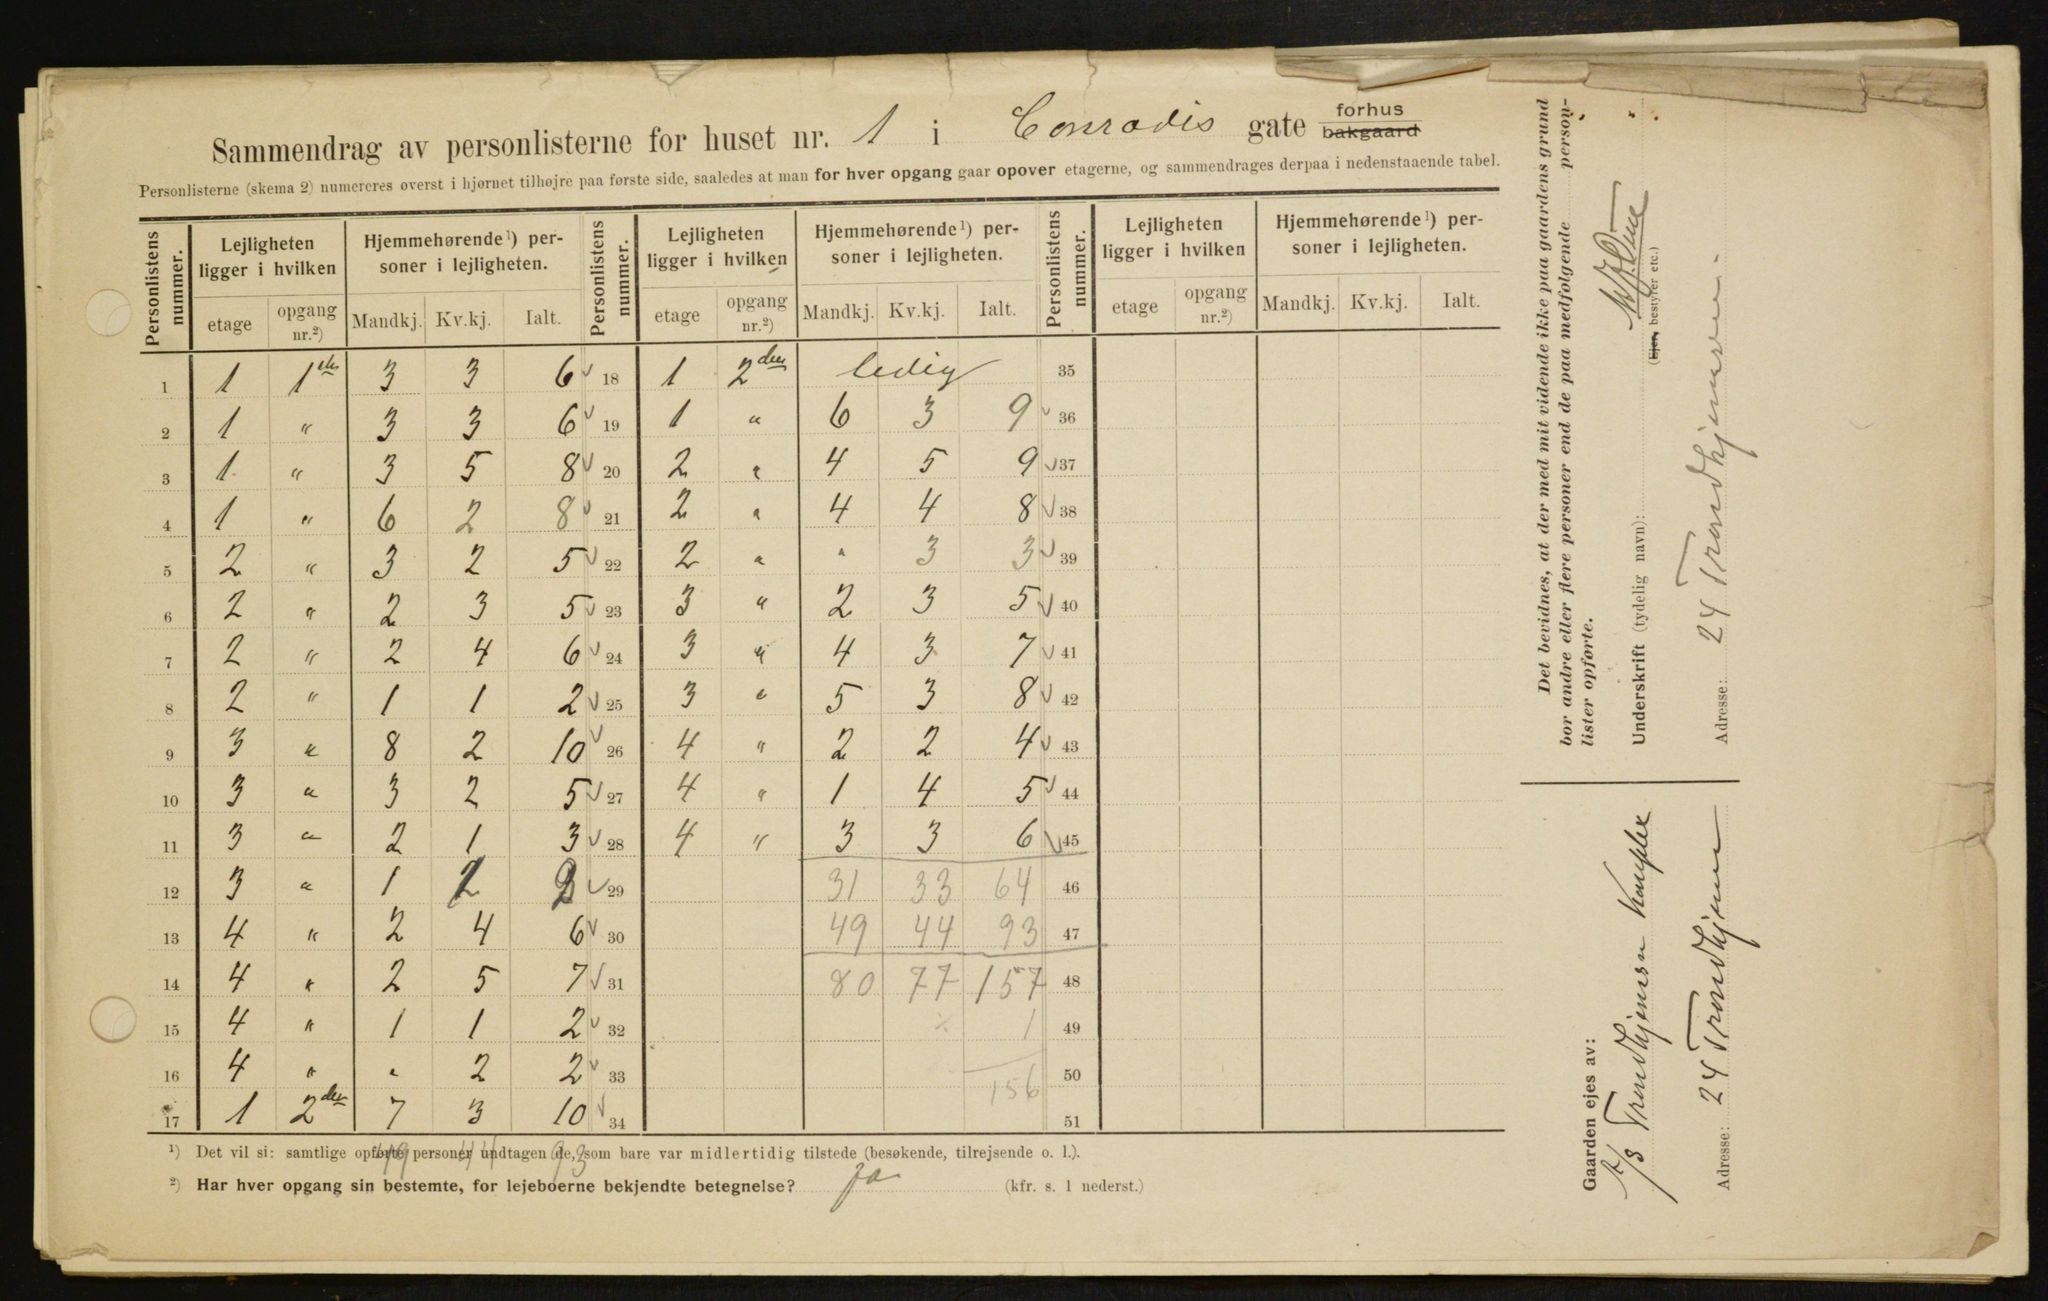 Sammendrag av personlisterne for huset nr. 1 i Conradis gate forhus bakgaard
Personlisterne (skema 2) numereres øverst i hjørnet tilhøjre paa første side, saaledes at man for hver opgang gaar opover etagerne, og sammendrages derpaa i nedenstaaende tabel.
Personlistens nummer. Lejligheten ligger i hvilken Hjemmehørende¹) personer i lejligheten. Personlistens nummer. Lejligheten ligger i hvilken Hjemmehørende¹) personer i lejligheten. Personlistens nummer. Lejligheten ligger i hvilken Hjemmehørende¹) personer i lejligheten.
etage opgang nr.²) Mandkj. Kv.kj. Ialt. etage opgang nr.²) Mandkj. Kv.kj. Ialt. etage opgang nr.²) Mandkj. Kv.kj. Ialt.
1 1 1ste 3 3 6 18 1 2den ledig 35
2 1 " 3 3 6 19 1 " 6 3 9 36
3 1 " 3 5 8 20 2 " 4 5 9 37
4 1 " 6 2 8 21 2 " 4 4 8 38
5 2 " 3 2 5 22 2 " " 3 3 39
6 2 " 2 3 5 23 3 " 2 3 5 40
7 2 " 2 4 6 24 3 " 4 3 7 41
8 2 " 1 1 2 25 3 " 5 3 8 42
9 3 " 8 2 10 26 4 " 2 2 4 43
10 3 " 3 2 5 27 4 " 1 4 5 44
11 3 " 2 1 3 28 4 " 3 3 6 45
12 3 " 1 2 3 29 31 33 64 46
13 4 " 2 4 6 30 49 44 93 47
14 4 " 2 5 7 31 80 77 157 48
15 4 " 1 1 2 32 1 49
16 4 " " 2 2 33 156 50
17 1 2den 7 3 10 34 51
49 44 93
¹) Det vil si: samtlige opførte personer undtagen de, som bare var midlertidig tilstede (besøkende, tilrejsende o. l.).
²) Har hver opgang sin bestemte, for lejeboerne bekjendte betegnelse? Ja (kfr. s. 1 nederst.)
Det bevidnes, at der med mit vidende ikke paa gaardens grund
bor andre eller flere personer end de paa medfølgende personlister opførte.
Underskrift (tydelig navn):
(Ejer, bestyrer etc.)
Adresse: 24 Trondhjemsvn.
Gaarden ejes av:
A/S Trondhjemsvn
Adresse: 24 Trondhjemsvn